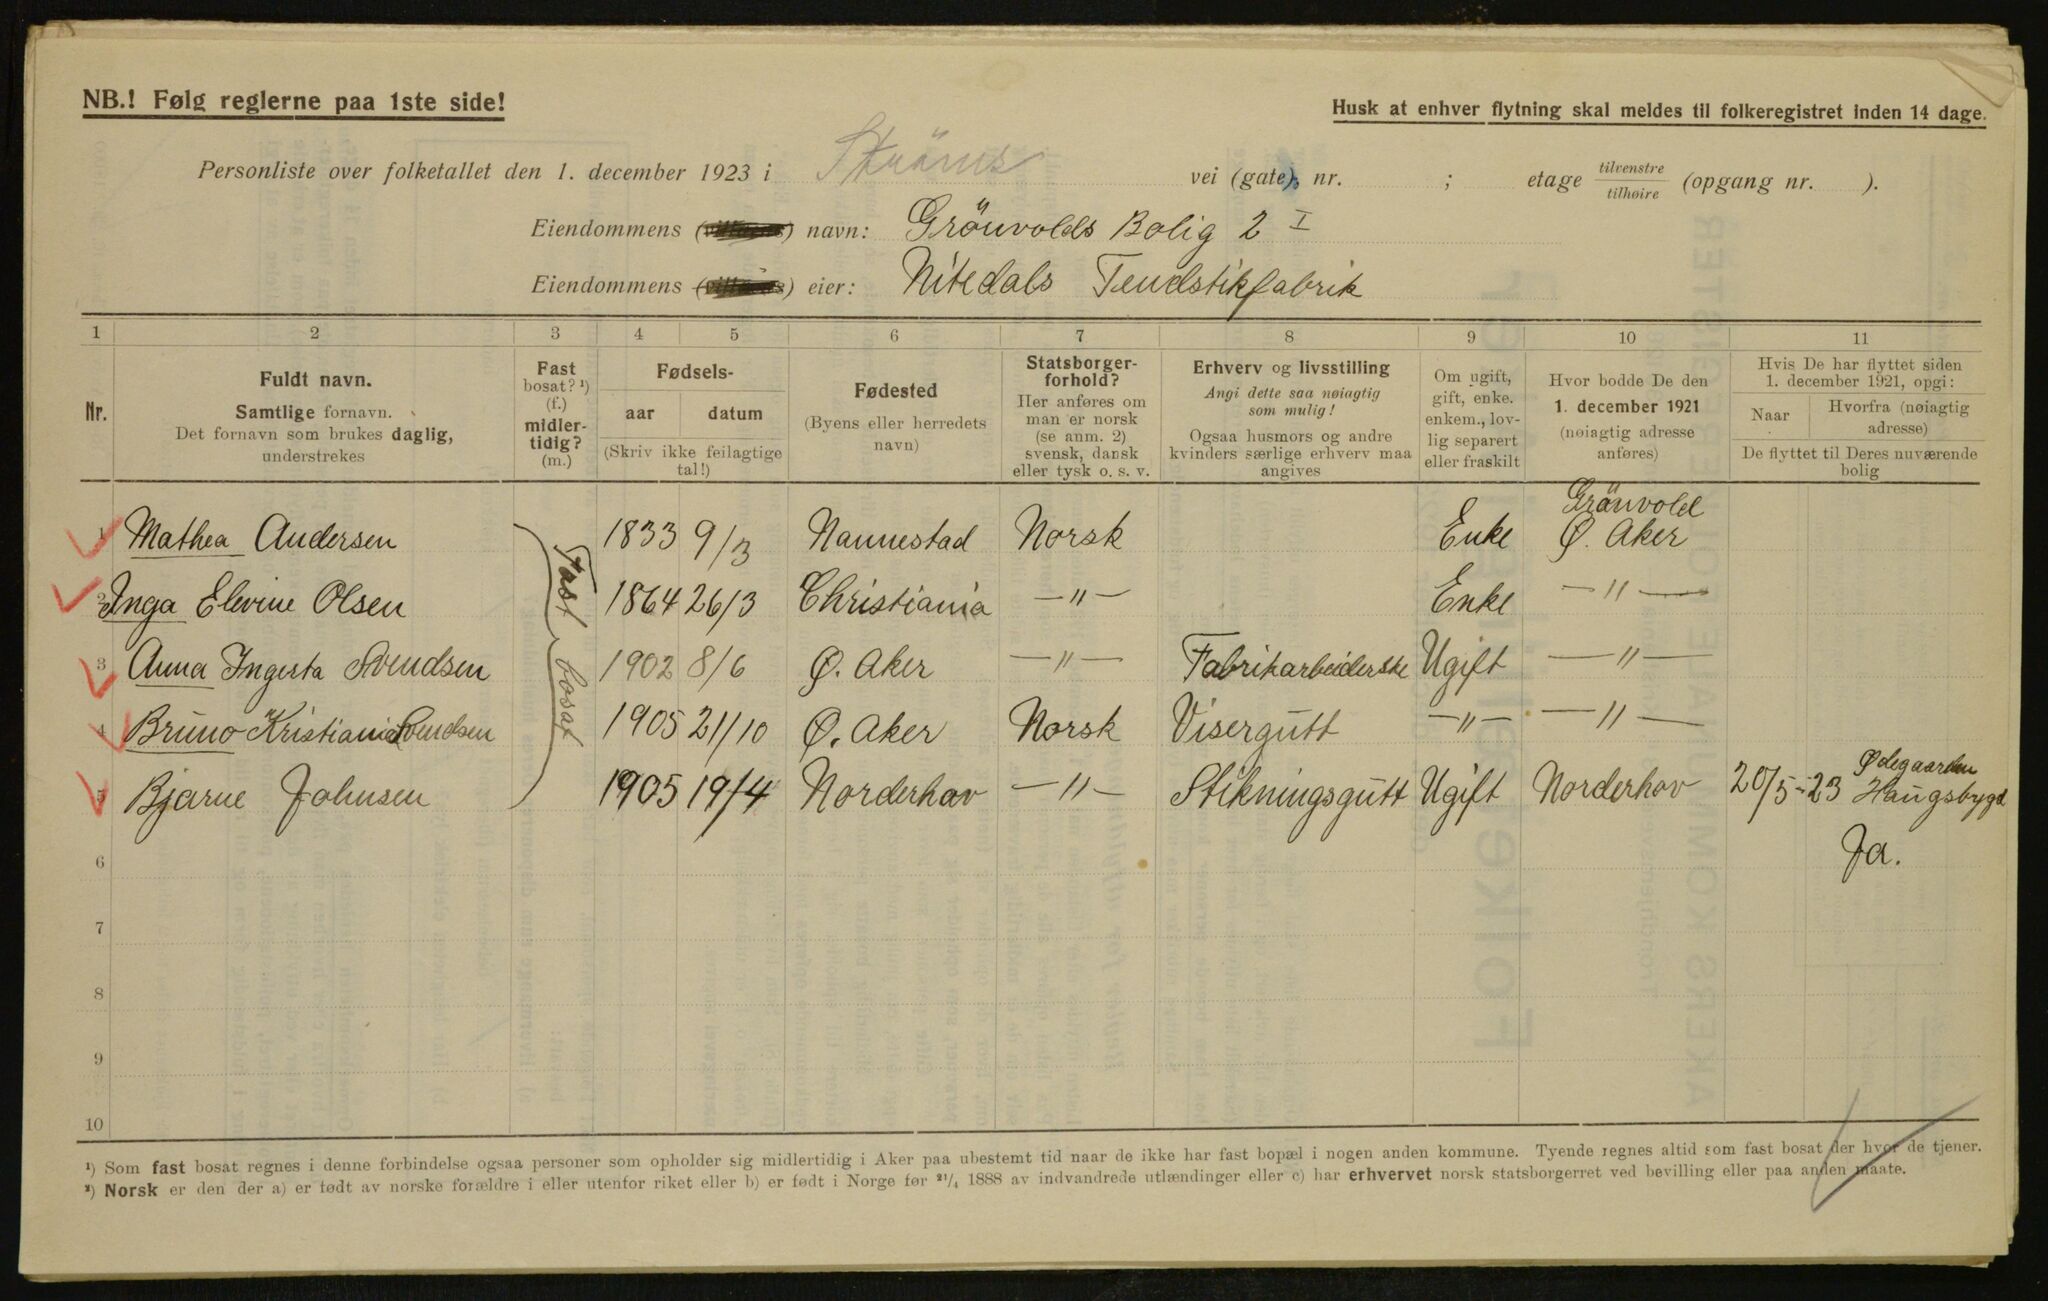 NB.! Følg reglerne paa 1ste side!
Husk at enhver flytning skal meldes til folkeregistret inden 14 dage.
Personliste over folketallet den 1. december 1923 i Ströms vei (gate), nr. ; etage tilvenstre/tilhøire (opgang nr. ).
Eiendommens navn: Grönvolds Bolig 2 I
Eiendommens eier: Nitedals Tendstikfabrik
1 2 3 4 5 6 7 8 9 10 11
Nr.
Fuldt navn.
Samtlige fornavn.
Det fornavn som brukes daglig,
understrekes
Fast
bosat? ¹)
(f.)
midler-
tidig?
(m.)
Fødsels-
aar datum
(Skriv ikke feilagtige
tal!)
Fødested
(Byens eller herredets
navn)
Statsborger-
forhold?
Her anføres om
man er norsk
(se anm. 2)
svensk, dansk
eller tysk o. s. v.
Erhverv og livsstilling
Angi dette saa nøiagtig
som mulig!
Ogsaa husmors og andre
kvinders særlige erhverv maa
angives
Om ugift,
gift, enke.
enkem., lov-
lig separert
eller fraskilt
Hvor bodde De den
1. december 1921
(nøiagtig adresse
anføres)
Hvis De har flyttet siden
1. december 1921, opgi:
Naar
Hvorfra (nøiagtig
adresse)
De flyttet til Deres nuværende
bolig
Fast bosat
Grönvold
1 Mathea Andersen 1833 9/3 Nannestad Norsk Enke Ø. Aker
2 Inga Elevine Olsen 1864 26/3 Christiania —"— Enke —"—
3 Anna Ingerta Svendsen 1902 8/6 Ø. Aker —"— Fabrikarbeiderske Ugift —"—
4 Bruno Kristian Svendsen 1905 21/10 Ø. Aker Norsk Visergutt —"— —"—
5 Bjarne Johnsen 1905 19/4 Norderhov —"— Stikningsgutt Ugift Norderhov 20/5-23 Ødegaarden
Haugsbygd
Ja.
6
7
8
9
10
¹) Som fast bosat regnes i denne forbindelse ogsaa personer som opholder sig midlertidig i Aker paa ubestemt tid naar de ikke har fast bopæl i nogen anden kommune. Tyende regnes altid som fast bosat der hvor de tjener.
²) Norsk er den der a) er født av norske forældre i eller utenfor riket eller b) er født i Norge før ²¹/₄ 1888 av indvandrede utlændinger eller c) har erhvervet norsk statsborgerret ved bevilling eller paa anden maate.